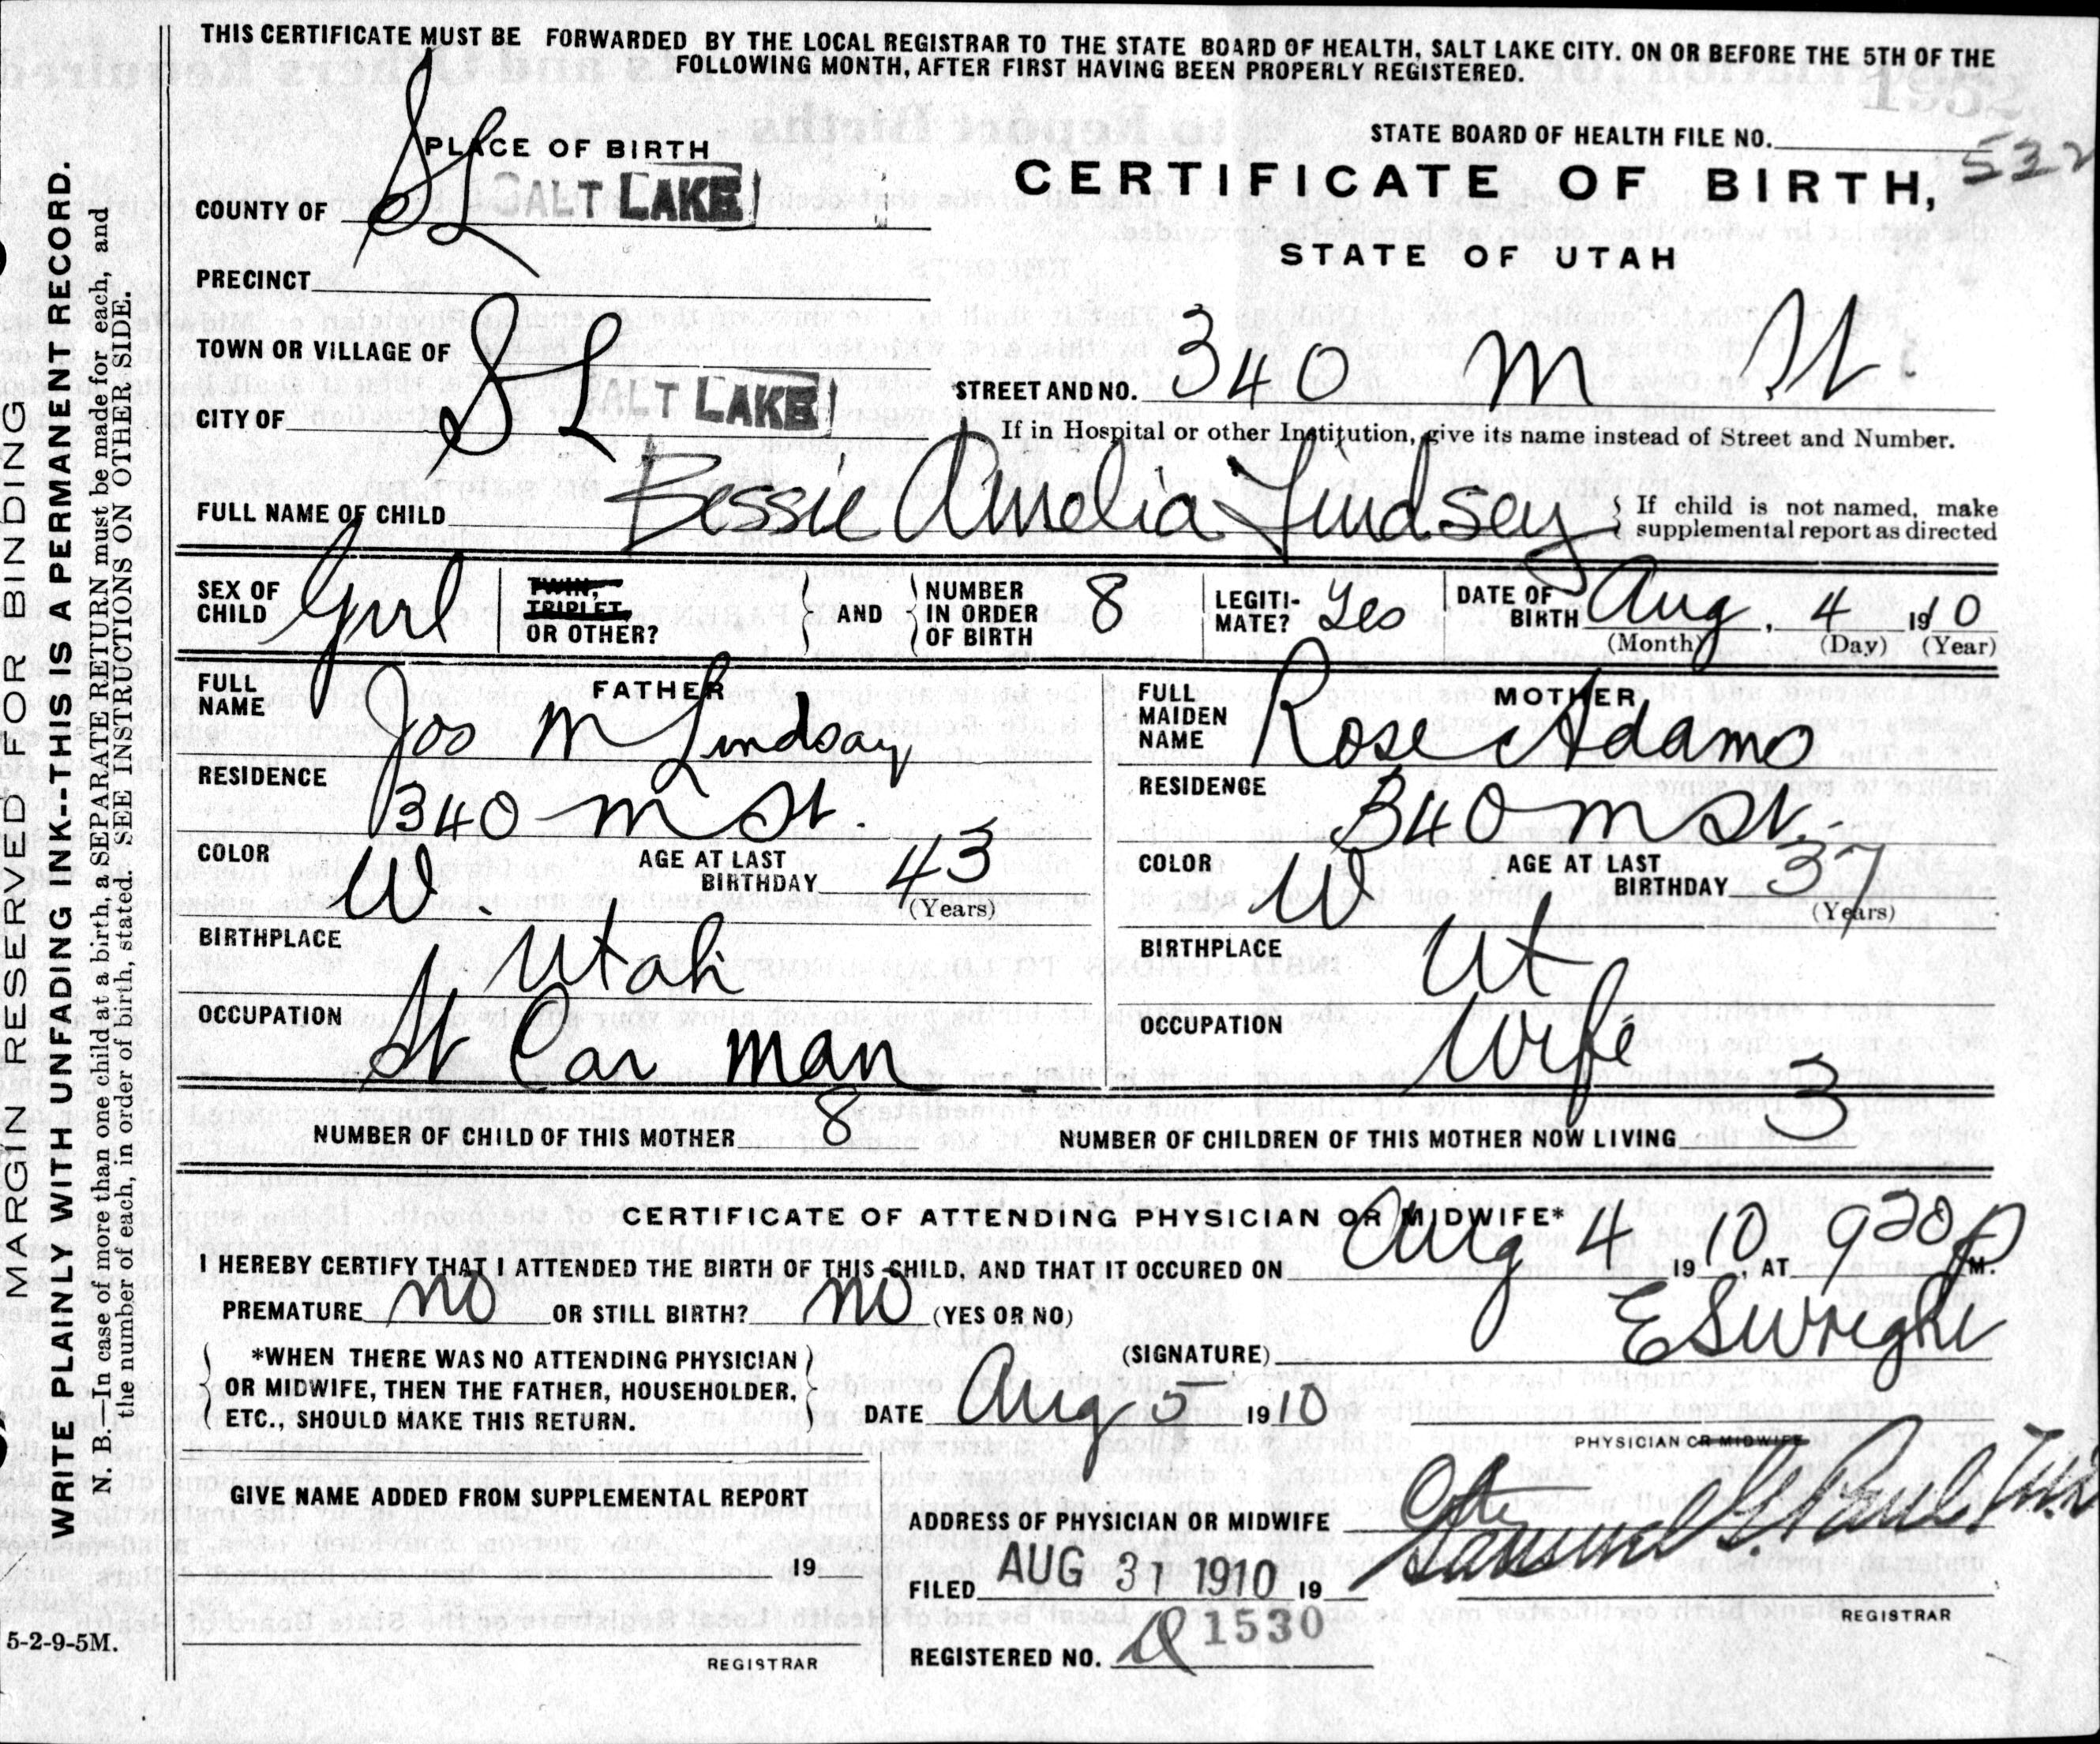 THIS CERTIFICATE MUST BE FORWARDED BY THE LOCAL REGISTRAR TO THE STATE BOARD OF HEALTH, SALT LAKE CITY. ON OR BEFORE THE 5TH OF THE
FOLLOWING MONTH, AFTER FIRST HAVING BEEN PROPERLY REGISTERED.
1952
STATE BOARD OF HEALTH FILE NO. 532
PLACE OF BIRTH
CERTIFICATE OF BIRTH,
STATE OF UTAH
COUNTY OF SL SALT LAKE
PRECINCT
TOWN OR VILLAGE OF
CITY OF SL SALT LAKE
STREET AND NO. 340 M St
If in Hospital or other Institution, give its name instead of Street and Number.
FULL NAME OF CHILD Bessie Amelia Lindsey
If child is not named, make
supplemental report as directed
SEX OF CHILD Girl
TWIN, TRIPLET, OR OTHER?
AND
NUMBER IN ORDER OF BIRTH 8
LEGITI-MATE? Yes
DATE OF BIRTH Aug, 4 1910
(Month) (Day) (Year)
FATHER
FULL NAME Jos M Lindsay
RESIDENCE 340 M St.
COLOR W. AGE AT LAST BIRTHDAY 43
(Years)
BIRTHPLACE Utah
OCCUPATION St Car man
MOTHER
FULL MAIDEN NAME Rose Adams
RESIDENCE 340 M St.
COLOR W AGE AT LAST BIRTHDAY 37
(Years)
BIRTHPLACE Ut
OCCUPATION Wife
NUMBER OF CHILD OF THIS MOTHER 8
NUMBER OF CHILDREN OF THIS MOTHER NOW LIVING 3
CERTIFICATE OF ATTENDING PHYSICIAN OR MIDWIFE*
I HEREBY CERTIFY THAT I ATTENDED THE BIRTH OF THIS CHILD, AND THAT IT OCCURED ON Aug 4 1910, AT 920 P M.
PREMATURE no OR STILL BIRTH? no (YES OR NO)
*WHEN THERE WAS NO ATTENDING PHYSICIAN
OR MIDWIFE, THEN THE FATHER, HOUSEHOLDER,
ETC., SHOULD MAKE THIS RETURN.
(SIGNATURE) E S Wright
DATE Aug 5 1910
PHYSICIAN OR MIDWIFE
GIVE NAME ADDED FROM SUPPLEMENTAL REPORT
19
REGISTRAR
ADDRESS OF PHYSICIAN OR MIDWIFE City
FILED AUG 31 1910 19 Samuel G. Paul
REGISTRAR
REGISTERED NO. 1530
5-2-9-5M.
MARGIN RESERVED FOR BINDING
WRITE PLAINLY WITH UNFADING INK--THIS IS A PERMANENT RECORD.
N. B.—In case of more than one child at a birth, a SEPARATE RETURN must be made for each, and
the number of each, in order of birth, stated. SEE INSTRUCTIONS ON OTHER SIDE.